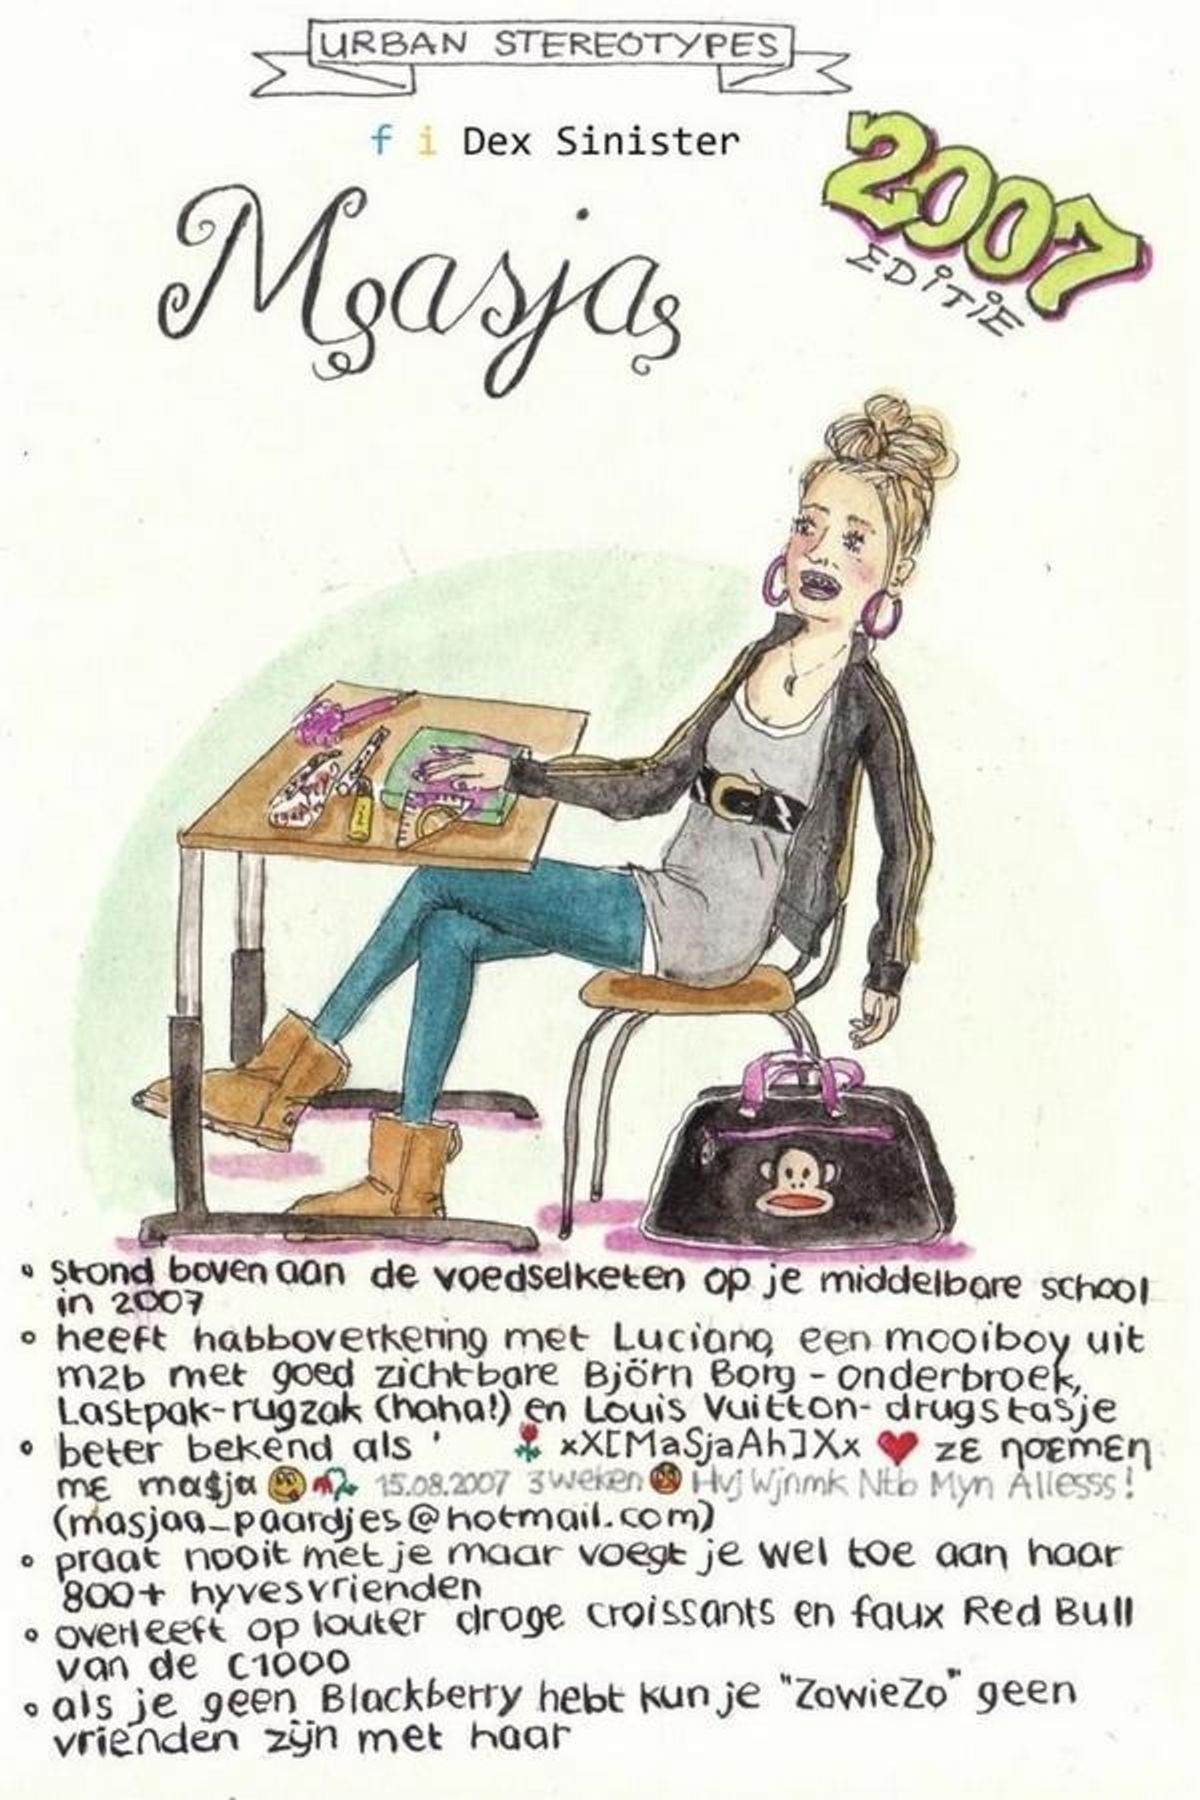 URBAN STEREOTYPES
f i Dex Sinister
2007
EDITIE
Masja
• stond bovenaan de voedselketen op je middelbare school
in 2007
• heeft habboverkering met Luciano, een mooiboy uit
m2b met goed zichtbare Björn Borg - onderbroek,
Lastpak-rugzak (haha!) en Louis Vuitton- drugstasje
• beter bekend als ' 🌹 xX[MaSjaAh]Xx ❤ zɛ ηoɛmɛη
mɛ ma$ja 😜 15.08.2007 3 weken Hvj Wjnmk Ntb Myn Allesss!
(masjaa_paardjes@hotmail.com)
• praat nooit met je maar voegt je wel toe aan haar
800+ hyvesvrienden
• overleeft op louter droge croissants en faux Red Bull
van de C1000
• als je geen Blackberry hebt kun je "ZowieZo" geen
vrienden zijn met haar